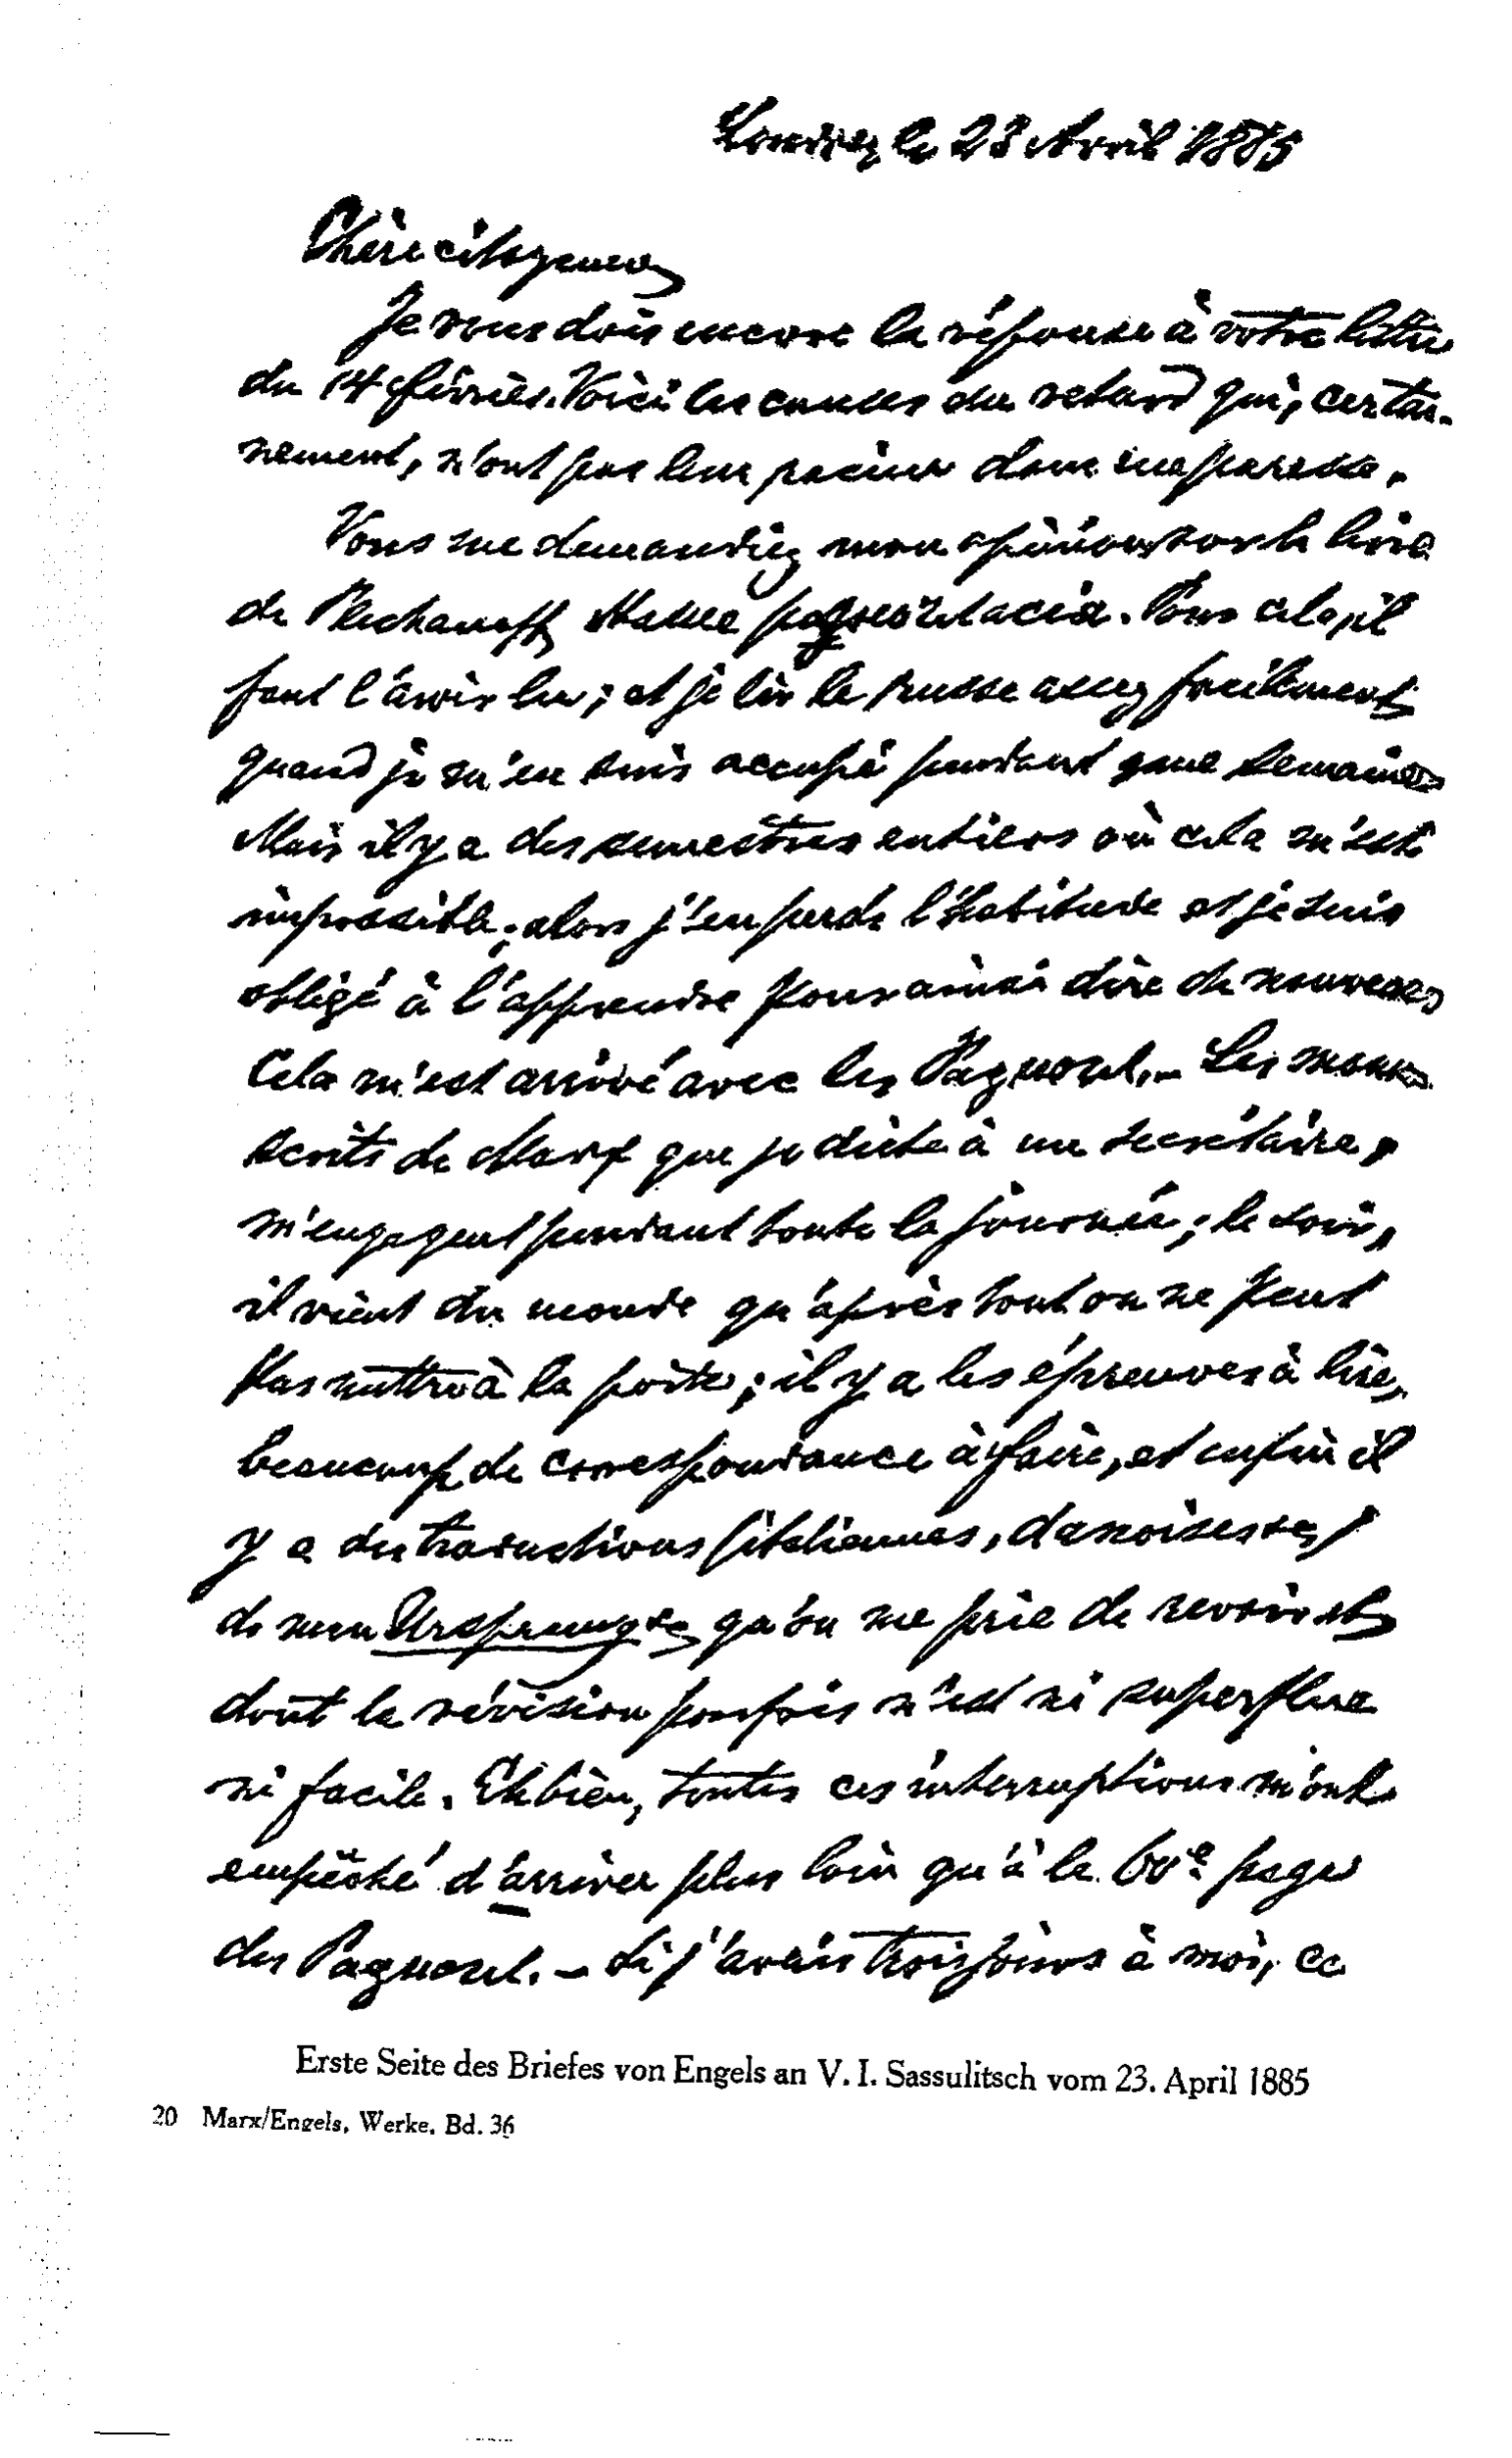 Londres le 23 Avril 1885
Chère citoyenne
Je vous dois encore la réponse à votre lettre
du 14 février. Voici les causes du retard qui, certai-
nement, n'ont pas leur racine dans ma paresse.
Vous me demandiez mon opinion sur le livre
de Plechanoff, Наши разногласія. Pour cela, il
faut l'avoir lu; et je lis le russe assez facilement
quand je m'en suis occupé pendant une semaine
Mais il y a des semestres entiers où cela m'est
impossible; alors j'en perds l'habitude et je suis
obligé à l'apprendre pour ainsi dire de nouveau
Cela m'est arrivé avec les Разногл. – Les manu
scrits de Marx que je dicte à un secrétaire,
m'engagent pendant toute la journée; le soir,
il vient du monde qu'après tout on ne peut
pas mettre à la porte; il y a les épreuves à lire,
beaucoup de correspondance à faire, et enfin il
y a des traductions (italiennes, danoises etc)
de mon Ursprung etc qu'on me prie de revoir et
dont la révision parfois n'est ni superflue
ni facile. Eh bien, toutes ces interruptions m'ont
empêché d'arriver plus loin qu'à la 60e page
des Разногл. – Si j'avais trois jours à moi, ce
Erste Seite des Briefes von Engels an V. I. Sassulitsch vom 23. April 1885
20 Marx/Engels, Werke, Bd. 36